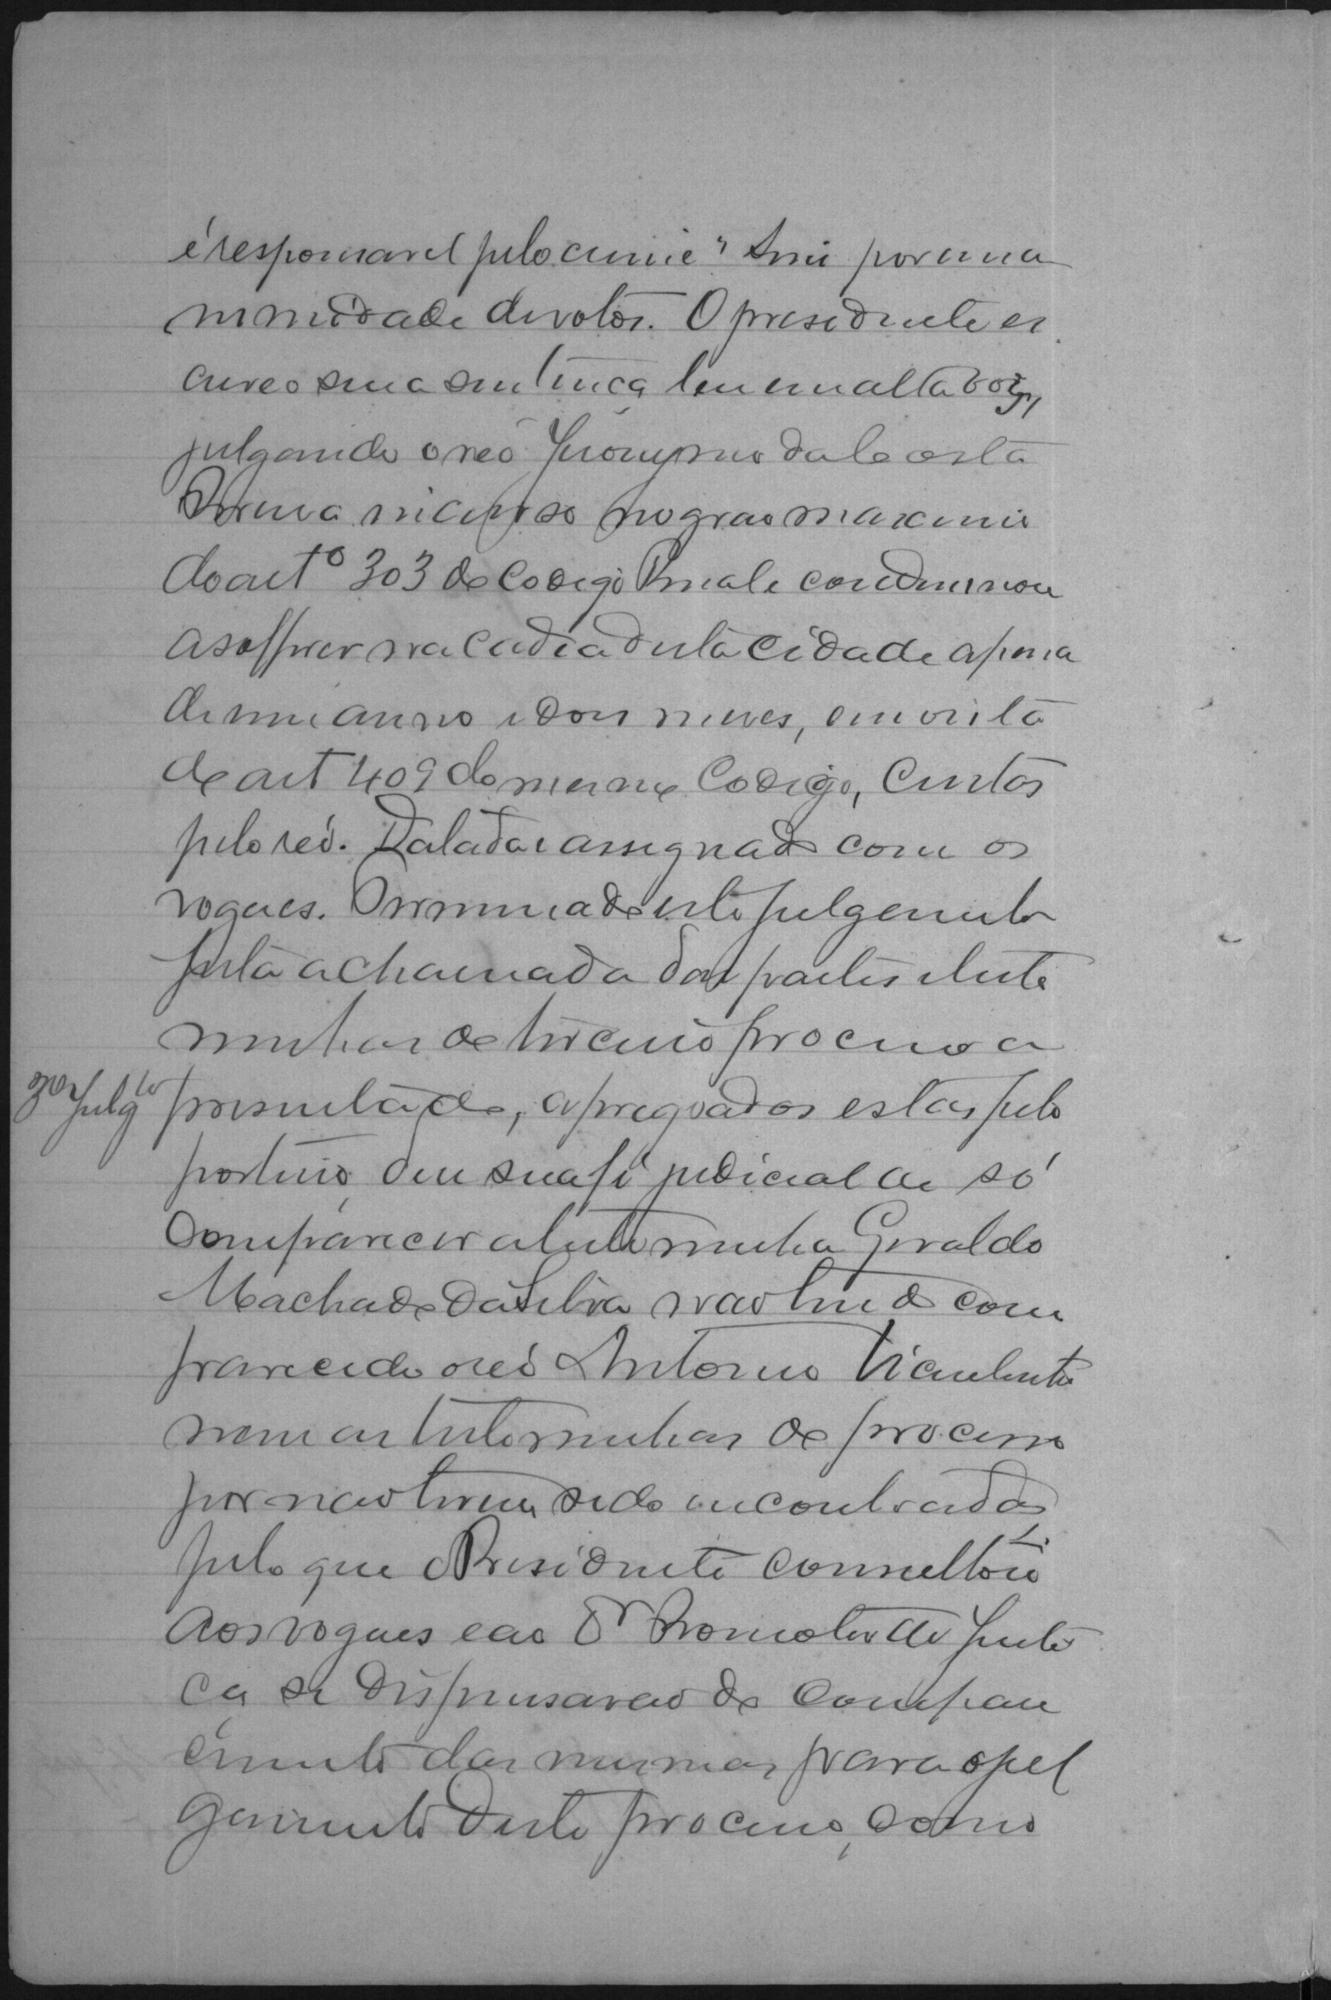 é responsavel pelo crime" Sim por una
nimidade de votos. O presidente es
creveo sua sentença leu em alta voz,
julgando o reo Jeronymo da Costa
incurso no grao maximo
do artº 303 do Codigo Penal e condemnou
a soffrer na cadeia desta cidade a pena
de um anno e dois meses, em vista
do art 409 do mesmo Codigo, Custas
pelo reo. Datada e assignada com os
vogaes. Terminado este julgamento
feita a chamada das partes e teste
munhas do terceiro processo a
3º Julgto
presentado, apregoados estas pelo
porteiro, deu sua fé judicial de só
comparecer a testemunha Geraldo
Machado da Silva não tendo com
parecido o reo Antonio
nem as testemunhas do processo
por não terem sido encontradas
pelo que o Presidente consultou
aos vogaes e ao Dr Promotor de Justi
ça se dispensavão do compare
cimento das mesmas para o jul
gamento deste processo, como